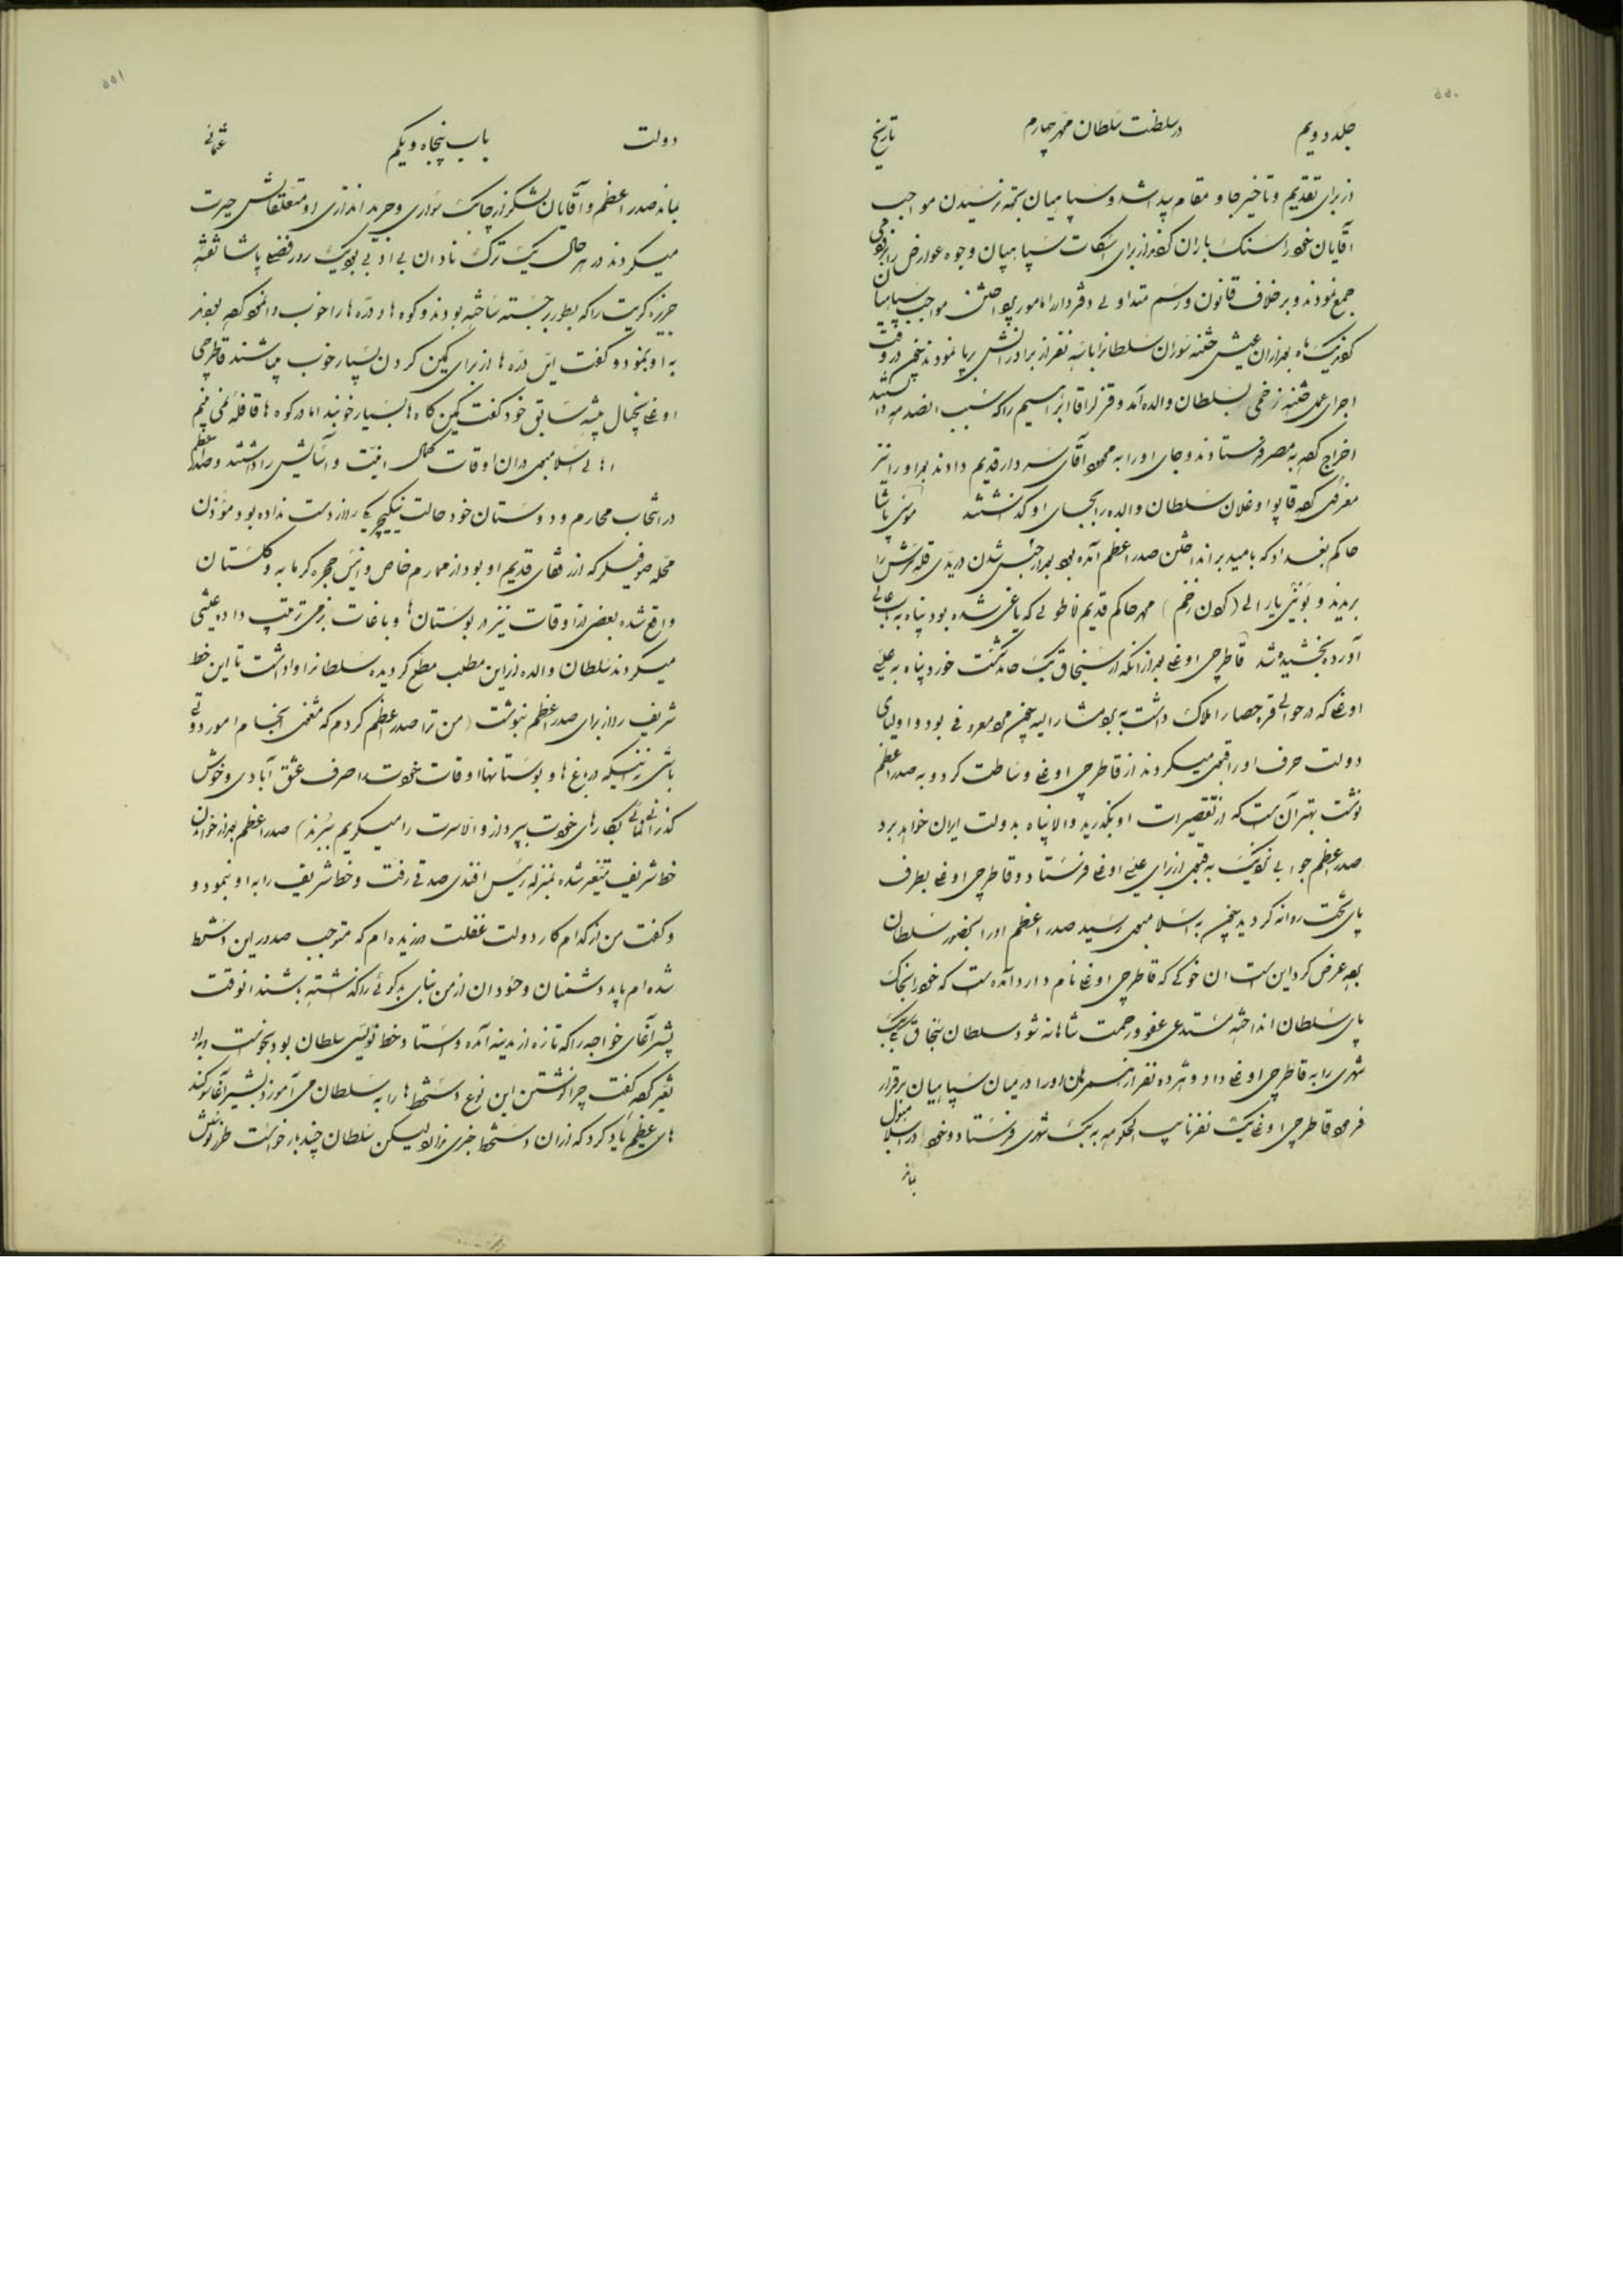 ۵۵۰
جلد دویم در سلطنت سلطان محمد چهارم تاریخ
از برای تقدیم و تاخیر جا و مقام پیدا شد و سپاهیان بجهة نرسیدن مواجب
آقایان خود را سنک باران کردند از برای اسکات سپاهیان وجوه عوارض را
جمع نمودند و بر خلاف قانون و رسم متداولی دفتردار را مامور مواجب سپاهیان
کردند یکماه بعد از ان عیش ختنه سوران سلطانرا با سه نفر از برادرانش برپا نمودند در وقت
اجرای عمل ختنه زخمی بسلطان والده آمد و قزلر اقا ابراهیم را که سبب این صدمه
اخراج کرده به مصر فرستادند و جای او را به محمد آقای سردار قدیم دادند بعد او را نیز
معزول کرده قاپو اوغلان سلطان والده را بجای او گذاشتند موسی پاشا
حاکم بغداد که بامید بر انداختن صدر اعظم آمده بود بعد از حبس شدن در یدی قله سرش را
بریدند و یوینی یارالی (کردن زخم) محمد حاکم قدیم اناطولی که یاغی شده بود پناه به باب عالی
آورده بخشیده شد قاطرجی اوغلی بعد از انکه از سنجاق بیک حامد شکست خورد پناه به علی
اوغلی که در حوالی قره حصار املاک داشت برد مشار الیه شخص معروفی بود و اولیای
دولت حرف او را قبول میکردند از قاطرجی اوغلی وساطت کرد و به صدر اعظم
نوشت بهتر آنست که از تقصیرات او بگذرید و الا پناه بدولت ایران خواهد برد
صدر اعظم جوابی نزدیک به قبول از برای علی اوغلی فرستاد و قاطرجی اوغلی بطرف
پای تخت روانه گردید چون به اسلامبول رسید صدر اعظم او را بحضور سلطان
برده عرض کرد این است ان خوکی که قاطرجی اوغلی نام دارد آمده است که خود را بخاک
پای سلطان انداخته مستدعی عفو و رحمت شاهانه شود سلطان سنجاق بیک
شهری را به قاطرجی اوغلی داد و هژده نفر از همرهان او را در میان سپاهیان برقرار
فرمود قاطرجی اوغلی یک نفر نایب الحکومه به بیک شهری فرستاد و خود در اسلامبول
بماند
۵۵۱
دولت باب پنجاه و یکم عثمانی
بماند صدر اعظم و آقایان لشکر از چابک سواری و جرید اندازی او و متعلقانش حیرت
میکردند در هر حال یک ترک نادان بی ادبی بود یک روز فضلی پاشا نقشه
جزیره کریت را که بطور برجسته ساخته بودند و کوه ها و دره ها را خوب وا نمود کرده بودند
به او بنمود و گفت این دره ها از برای کمین کردن بسیار خوب میباشند قاطرجی
اوغلی بخیال پیشه سابق خود گفت کمین کاه ها بسیار خوبند اما در کوه ها قافله نمی بینم
اهالی اسلامبول در ان اوقات کمال امنیت و آسایش را داشتند و صدر اعظم
در انتخاب محارم و دوستان خود حالت ینکیچری را از دست نداده بود مؤذن
محله صوفیلر که از رفقای قدیم او بود از محارم خاص و انیس حجره کرمابه و گلستان
واقع شده بعضی از اوقات نیز در بوستان ها و باغات بزمی ترتیب داده عیشی
میکردند سلطان والده از این مطلب مطلع گردیده سلطانرا وا داشت تا این خط
شریف را از برای صدر اعظم بنوشت (من ترا صدر اعظم کردم که متحمل انجام امور دولتی
باشی نه اینکه در باغ ها و بوستانها اوقات خودت را صرف عشق آبادی و خوش
گذرانی نمائی بکارهای خودت بپرداز و الا سرت را میگویم ببرند) صدر اعظم بعد از خواندن
خط شریف متغیر شده بمنزل رئیس افندی صدقی رفت و خط شریف را به او بنمود و
و گفت من از کدام کار دولت غفلت ورزیده ام که مستوجب صدور این دستخط
شده ام باید دشمنان و حسودان از من بنای بدگوئی را گذاشته باشند انوقت
بشیر آقای خواجه را که تازه از مدینه آمده و استاد خط نویسی سلطان بود بخواست و به او
تغیر کرده گفت چرا نوشتن این نوع دستخط ها را به سلطان می آموزد بشیر آقا سوگند
های عظیم یاد کرد که از ان دستخط خبری ندارد لیکن سلطان چند بار خواست طرز نویش